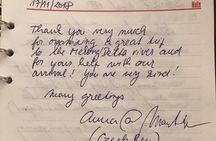 17/11/2018
Thank you very much
for organizing a great trip
to the Mekong Delta river and
for your help with our
arrival! You are very kind!
Many greetings
Anna @
(Czech Rep